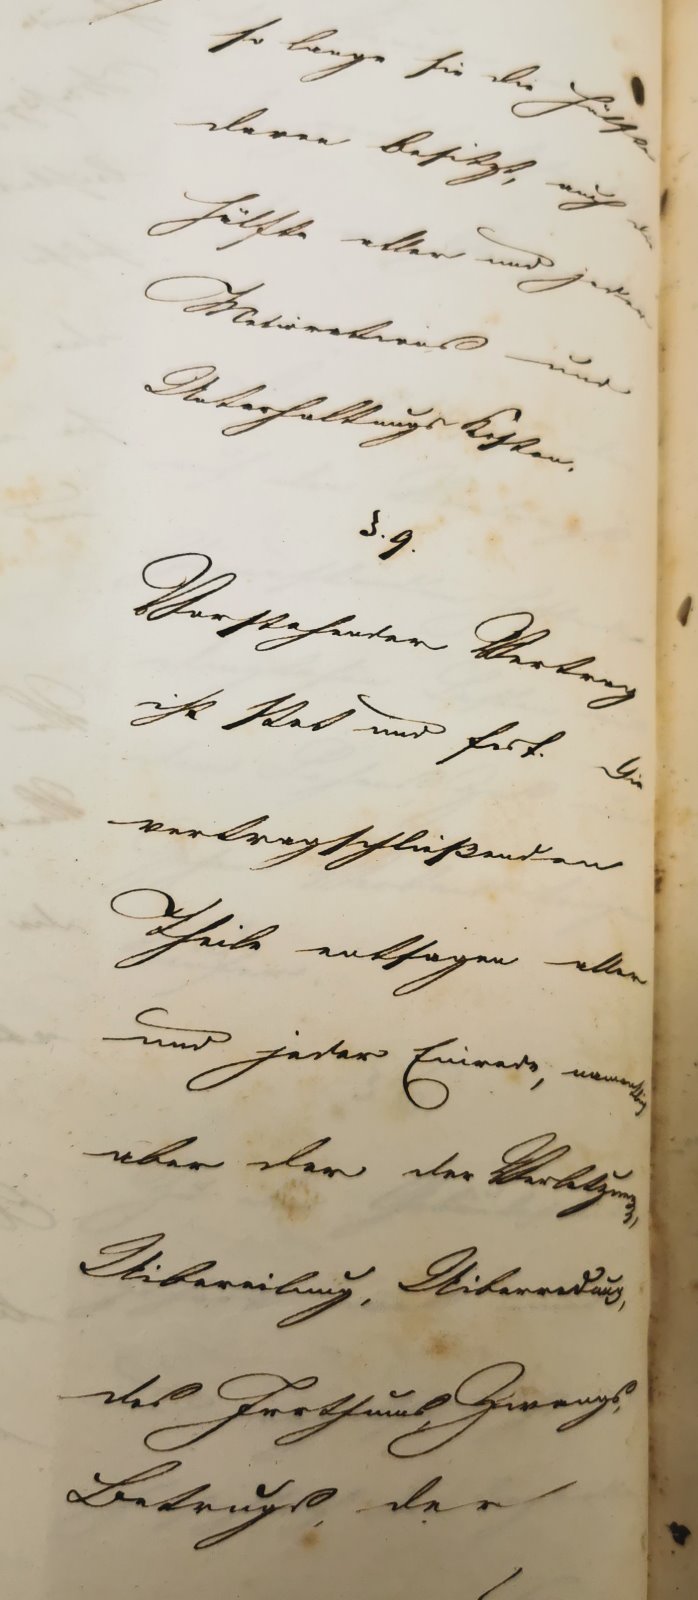 so lange sie die Hälfte
daran besitzt, auch die
Hälfte aller und jeder
Meliorations und
Unterhaltungs Kosten.
§. 9.
Vorstehender Vertrag
ist stet und fest. Die
vertragschließenden
Theile entsagen aller
und jeder Einrede, namentlich
aber der der Verletzung,
Uibereilung, Uiberredung,
des Irrthums, Zwangs,
Betrugs, der